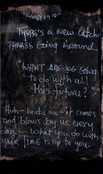 There's a New Catch
Phrase Going Around
"WHAT ARE WE GOING
to do with all
this
Huh - beats me - it comes
and blows by us every
day --- what you do with
your TIME is up to you.